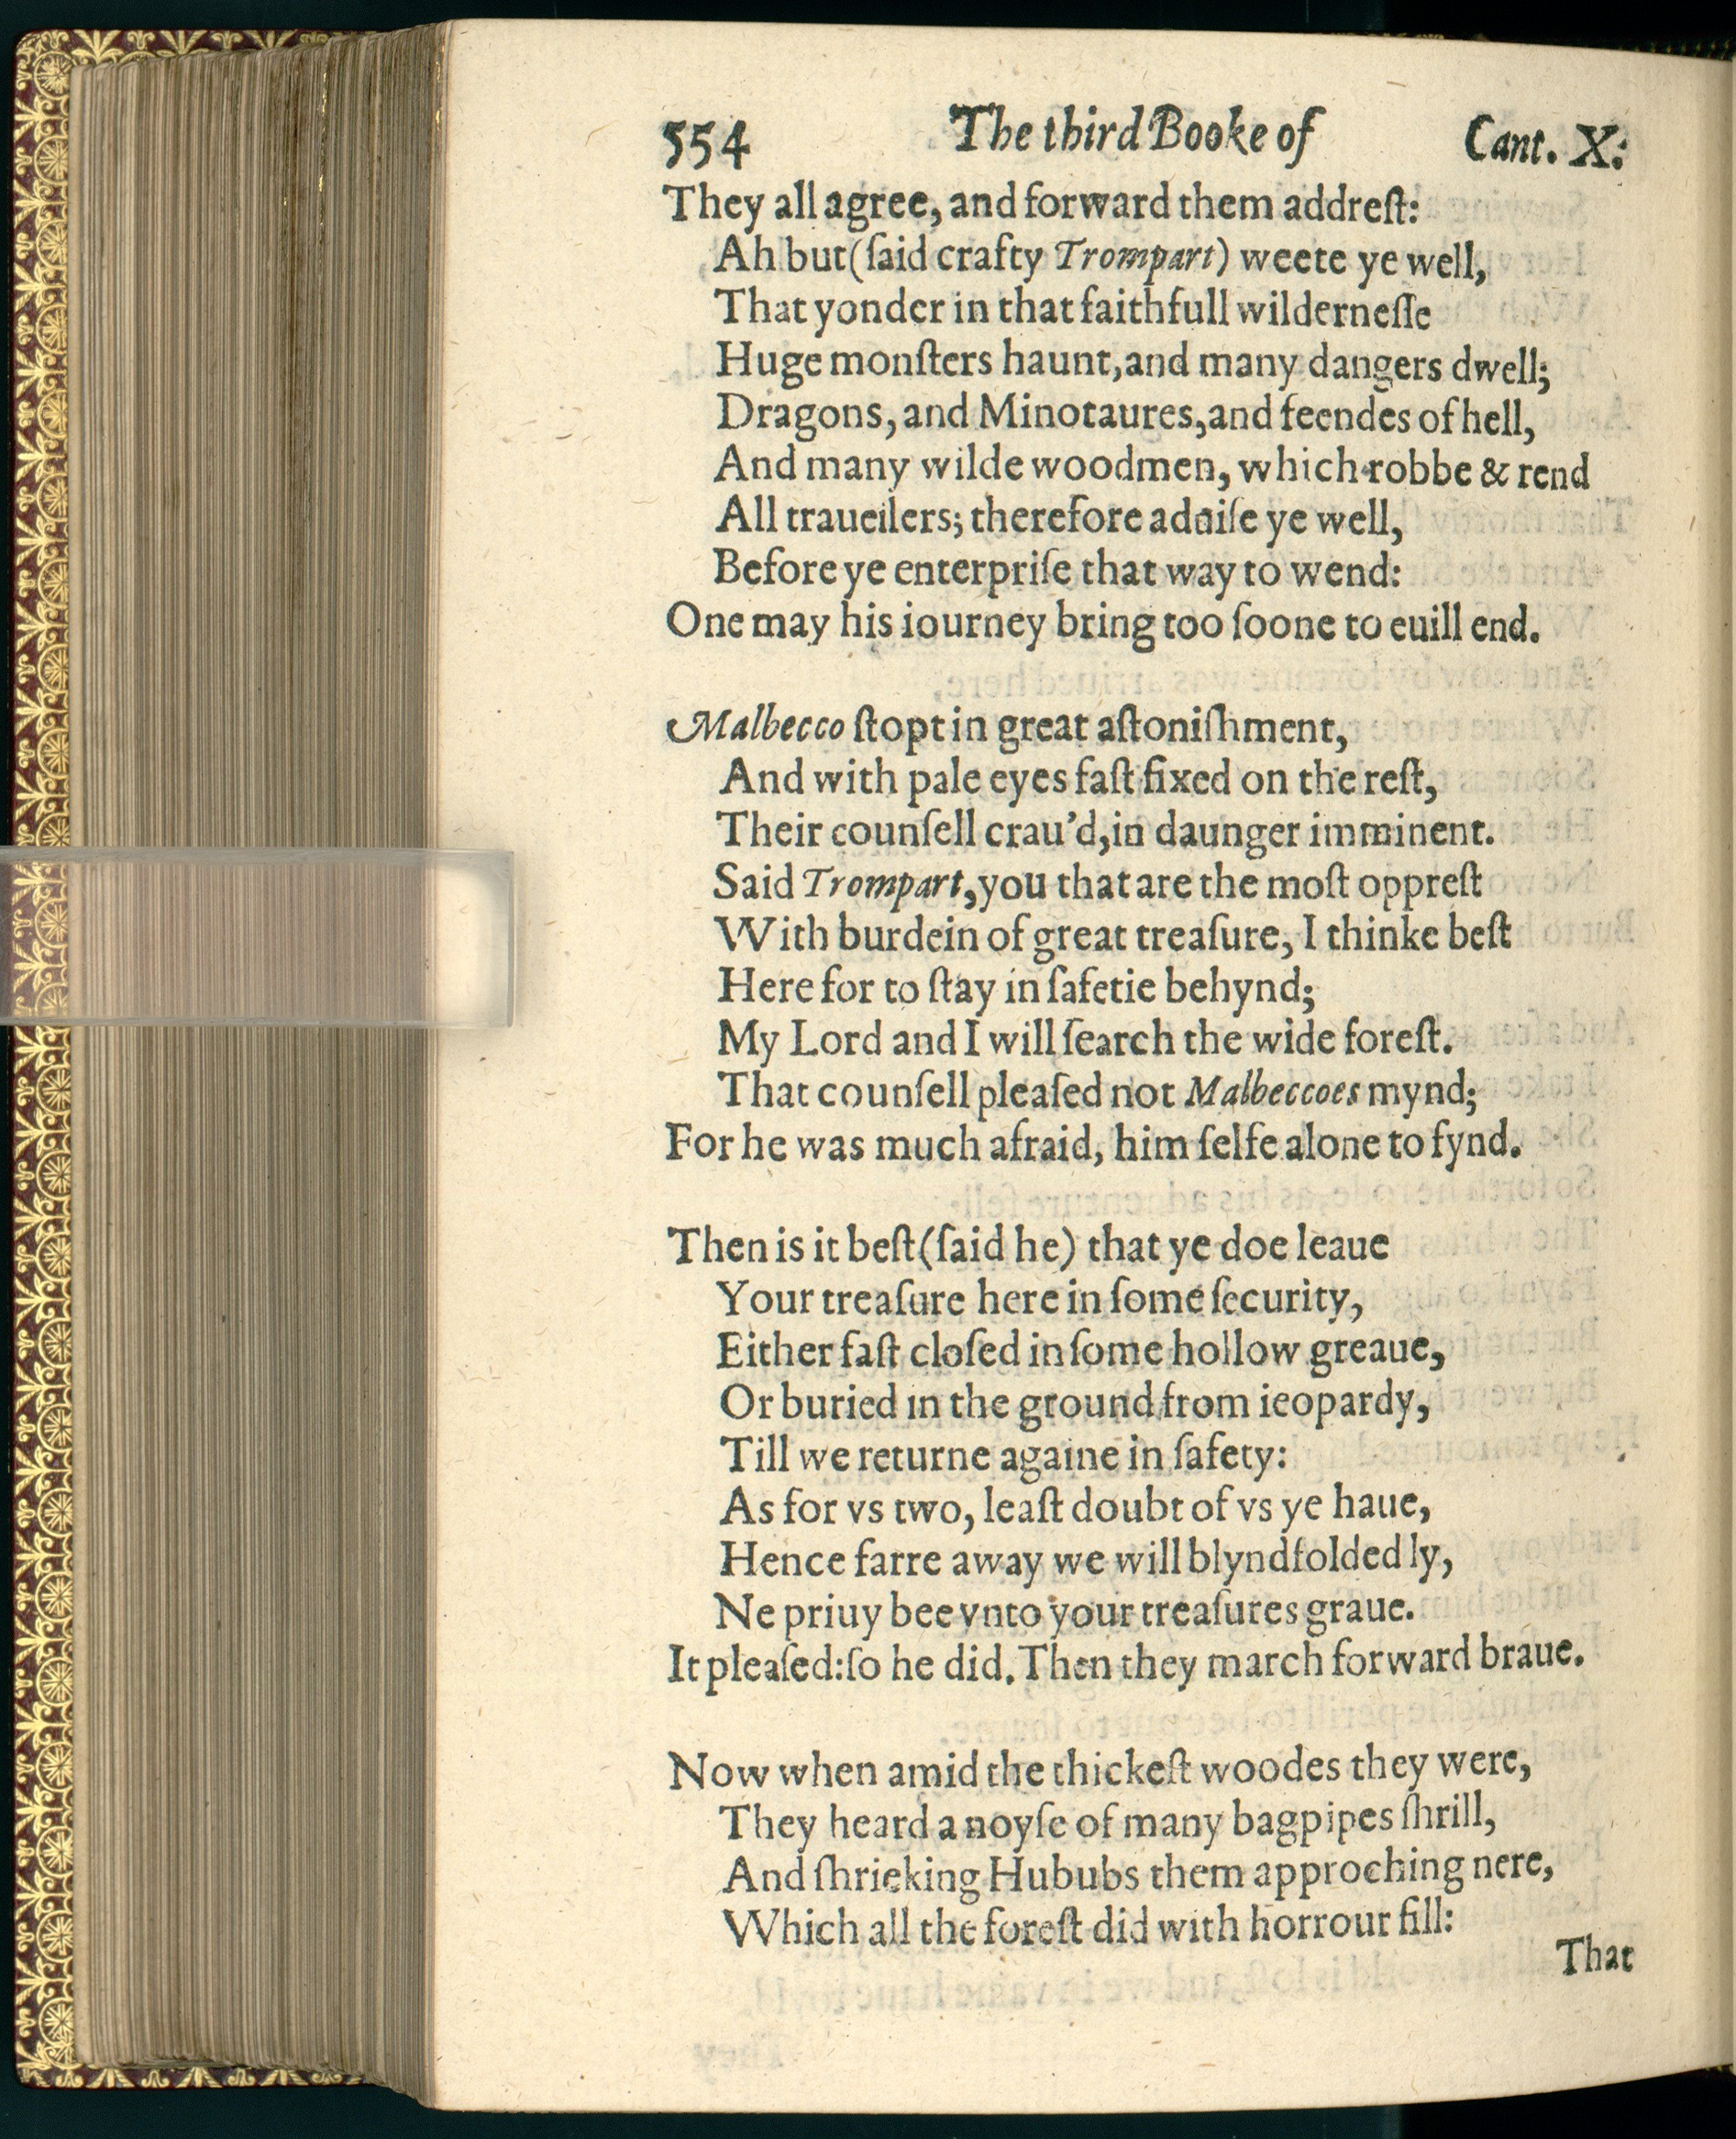 554 The third Booke of Cant. X:
They all agree, and forward them addreſt:
Ah but (ſaid crafty Trompart) weete ye well,
That yonder in that faithfull wilderneſſe
Huge monſters haunt, and many dangers dwell;
Dragons, and Minotaures, and feendes of hell,
And many wilde woodmen, which robbe & rend
All traueilers; therefore aduiſe ye well,
Before ye enterpriſe that way to wend:
One may his iourney bring too ſoone to euill end.
Malbecco ſtopt in great aſtoniſhment,
And with pale eyes faſt fixed on the reſt,
Their counſell crau'd, in daunger imminent.
Said Trompart, you that are the moſt oppreſt
With burdein of great treaſure, I thinke beſt
Here for to ſtay in ſafetie behynd;
My Lord and I will ſearch the wide foreſt.
That counſell pleaſed not Malbeccoes mynd;
For he was much afraid, him ſelfe alone to fynd.
Then is it beſt (ſaid he) that ye doe leaue
Your treaſure here in ſome ſecurity,
Either faſt cloſed in ſome hollow greaue,
Or buried in the ground from ieopardy,
Till we returne againe in ſafety:
As for vs two, leaſt doubt of vs ye haue,
Hence farre away we will blyndfolded ly,
Ne priuy bee vnto your treaſures graue.
It pleaſed: ſo he did. Then they march forward braue.
Now when amid the thickeſt woodes they were,
They heard a noyſe of many bagpipes ſhrill,
And ſhrieking Hububs them approching nere,
Which all the foreſt did with horrour fill:
That